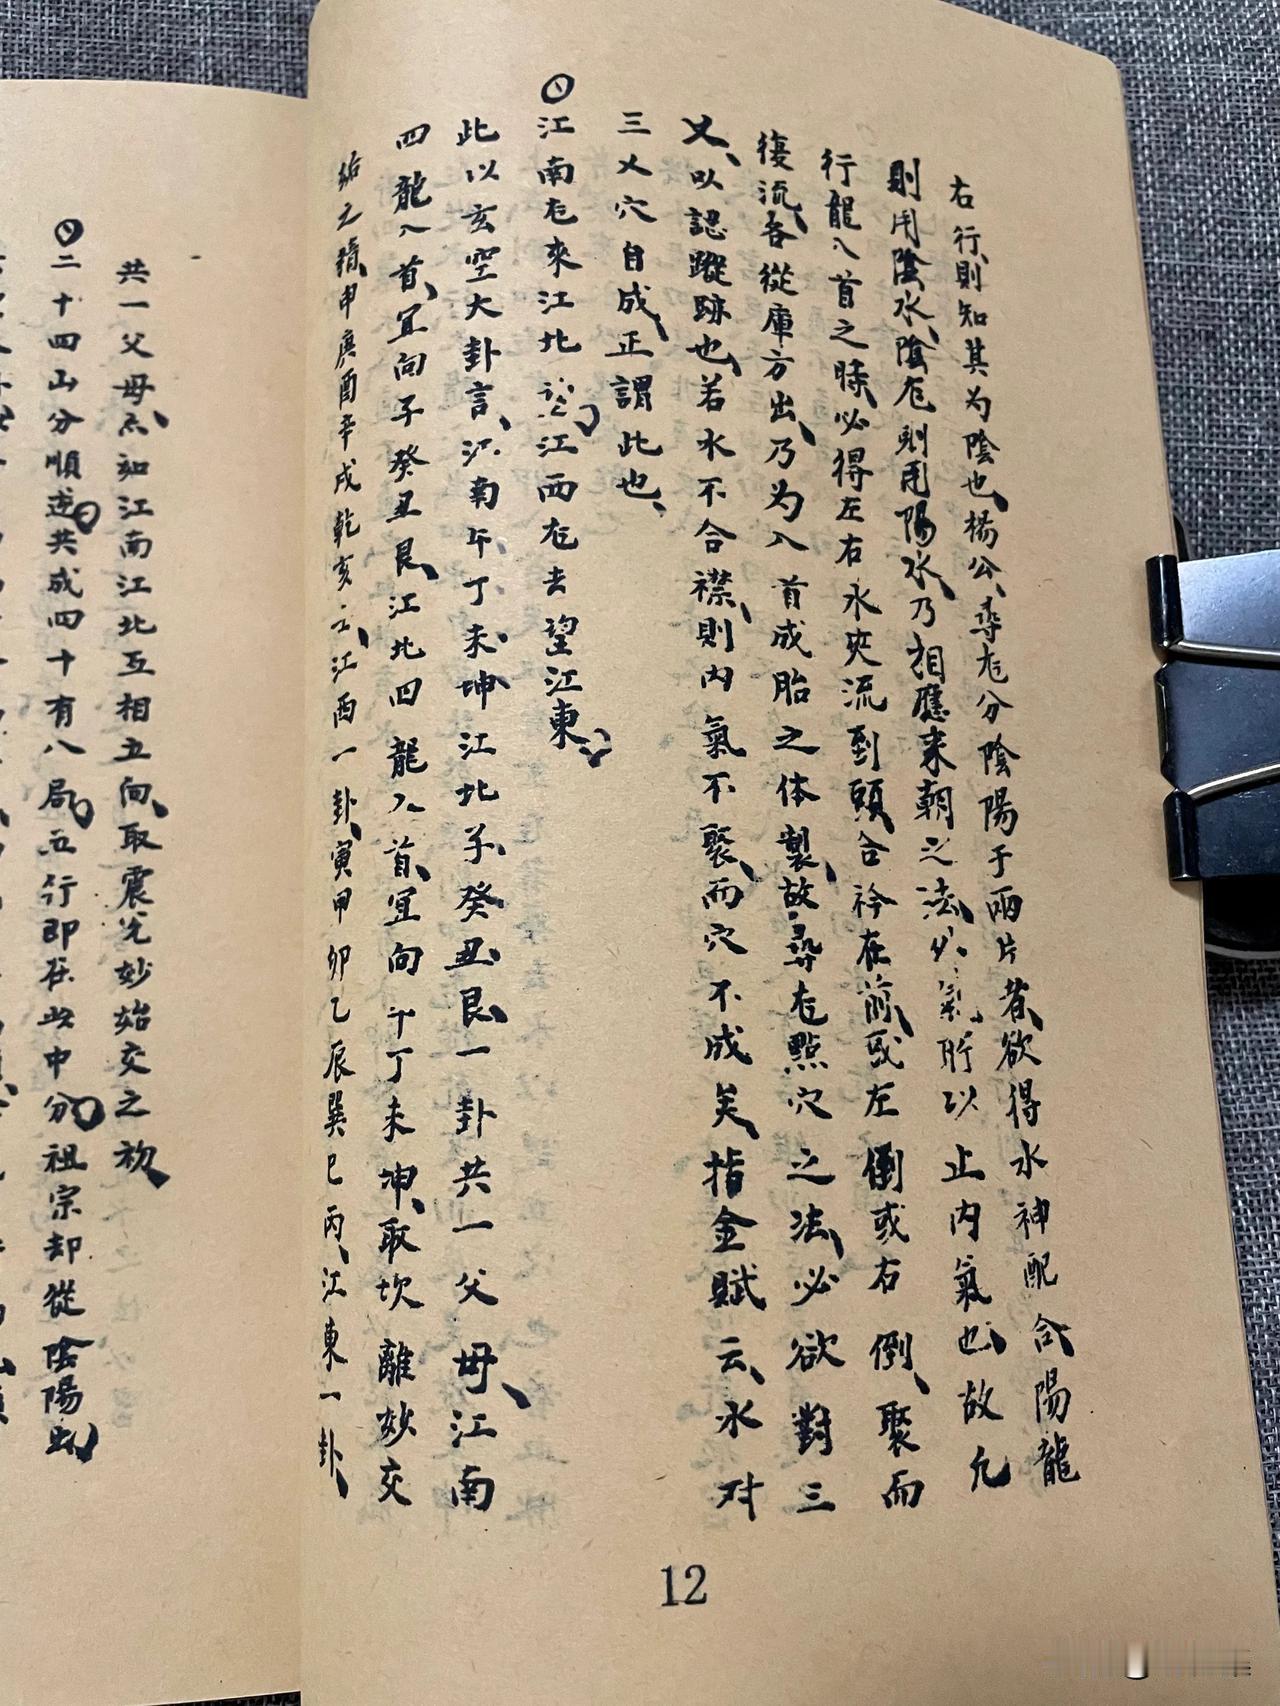 右行、則知其为陰也、楊公、尋龙分陰陽于兩片者、欲得水神配合、陽龍
則用陰水、陰龙則用陽水、乃相應来朝之法、外氣所以止内氣也、故凢
行龍入首之時、必得左右水夾流到頭、合衿在前、或左倒或右倒、聚而
復流、各從庫方出、乃为入首成胎之体製、故尋龙點穴之法、必欲對三
乂、以認蹤跡也、若水不合襟、則内氣不聚、而穴不成矣、指金賦云、水对
三乂穴自成、正謂此也、
江南龙來江北望、江西龙去望江東、
此以亥空大卦言、江南午丁未坤、江北子癸丑艮、一卦共一父母、江南
四龍入首、宜向子癸丑艮、江北四龍入首、宜向午丁未坤、取坎離妙交
始之積、申庚酉辛戌乾亥壬、江西一卦、寅甲卯乙辰巽巳丙、江東一卦、
共一父母、亦如江南江北互相立向、取震兌妙始交之初、
二十四山分順逆、共成四十有八局、五行即在此中分、祖宗却從陰陽出、
12